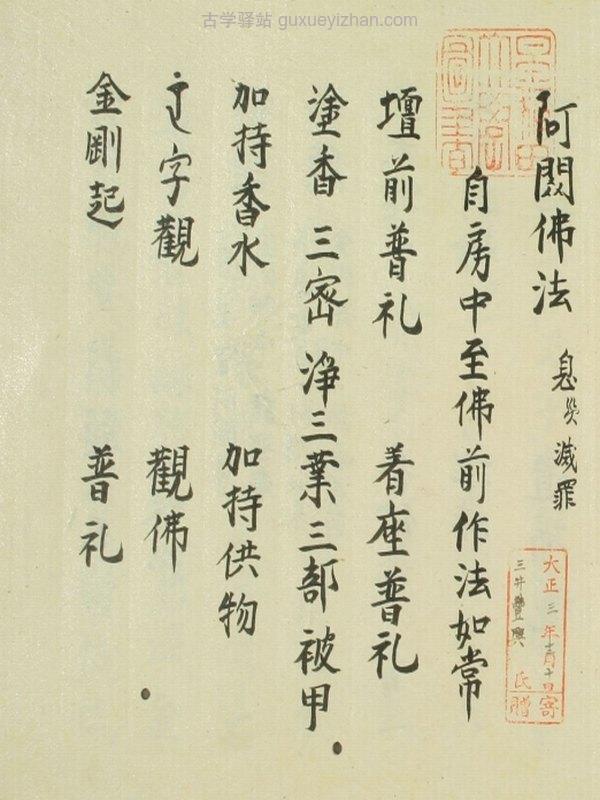 古学驿站 guxueyizhan.com
阿閦佛法 息災滅罪
自房中至佛前作法如常
壇前普礼 着座普礼
塗香 三密 淨三業三部 被甲
加持香水 加持供物
字觀 觀佛
金剛起 普礼
大正三年十月十日寄贈
三井豐興氏